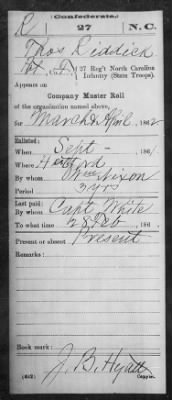 (Confederate.)
R 27 N.C.
Thos Riddick
Pvt, Co. , 27 Reg't North Carolina
Infantry (State Troops).
Appears on
Company Muster Roll
of the organization named above,
for March & April, 1862
Enlisted:
When Sept - , 186
Where Hertford
By whom Nixon
Period 3 yrs
Last paid:
By whom Capt White
To what time 28 Feb , 186
Present or absent Present
Remarks:
Book mark:
J. B. Hyatt
(642) Copyist.